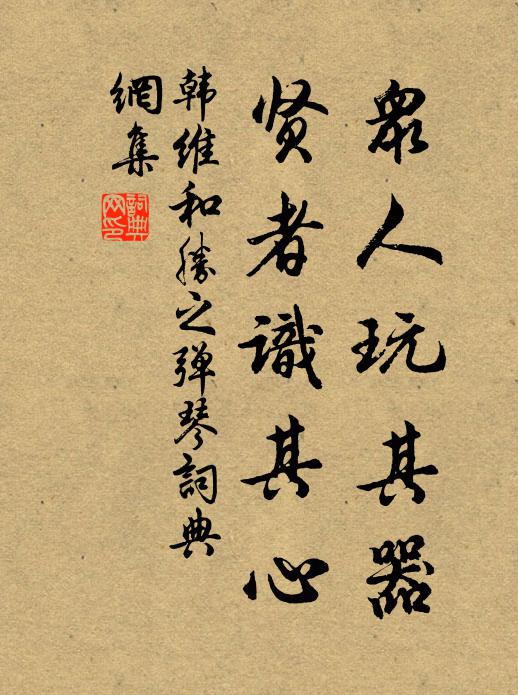 眾人玩其器
贤者識其心
韩維和勝之弹琴詞典
網集
詞典网印